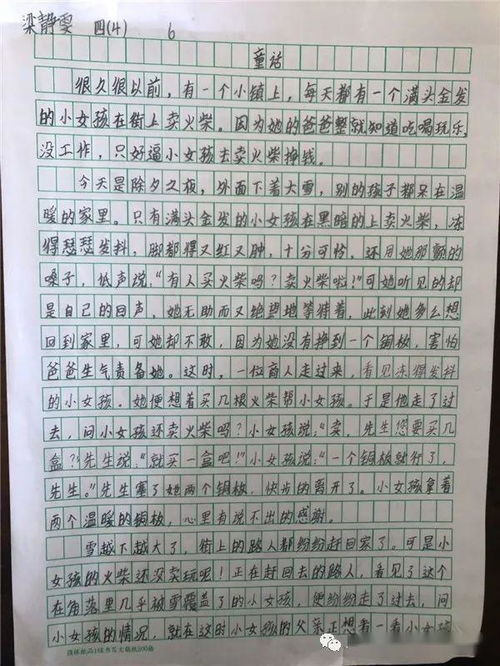 梁静雯 四(4) 6
童话
很久很以前，有一个小镇上，每天都有一个满头金发
的小女孩在街上卖火柴。因为她的爸爸整就知道吃喝玩乐，
没工作，只好逼小女孩去卖火柴挣钱。
今天是除夕之夜，外面下着大雪，别的孩子都呆在温
暖的家里。只有满头金发的小女孩在黑暗的上卖火柴，冻
得瑟瑟发抖，脚都得又红又肿，十分可怜，还用她那颤的
嗓子，低声说："有人买火柴吗？卖火柴啦！"可她听见的却
是自己的回声，她无助而又绝望地等待着，此刻她多么想
回到家里，可她却不敢，因为她没有挣到一个铜板，害怕
爸爸生气责备她。这时，一位商人走过来，看见冻得发抖
的小女孩。她便想着买几根火柴帮小女孩。于是他走了过
去，问小女孩还卖火柴吗？小女孩说："卖，先生您要买几
盒？"先生说："就买一盒吧！"小女孩说："一个铜板就行了，
先生。"先生塞了她两个铜板，快步的离开了。小女孩拿着
两个温暖的铜板，心里有说不出的感谢。
雪越下越大了，街上的路人都纷纷赶回家了。可是小
女孩的火柴还没卖玩呢！正在赶回去的路人，看见了这个
在角落里几乎被雪覆盖了的小女孩，便纷纷走了过去，问
小女孩的情况，就在这时小女孩的父亲正想看一看小女孩